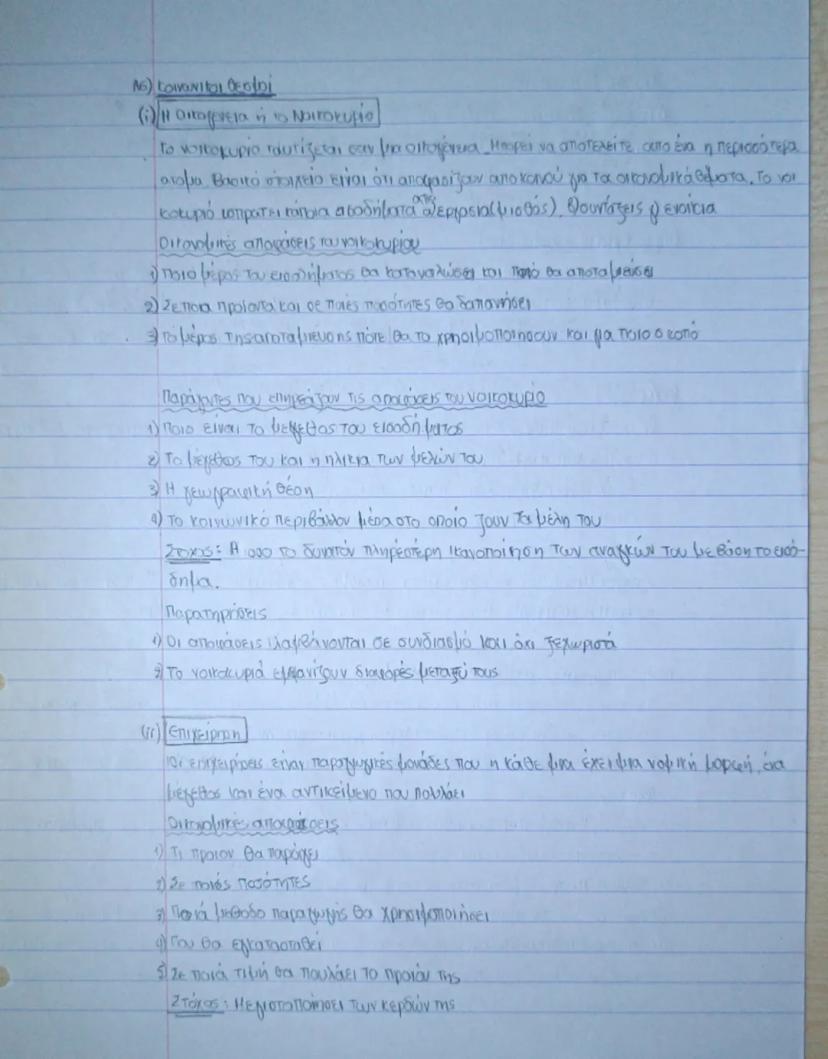 Α6) Κοινωνικοί Θεσμοί
(i) Η Οικογένεια ή το Νοικοκυριό
Το νοικοκυριό ταυτίζεται σαν μια οικογένεια. Μπορεί να αποτελείτε από ένα η περισσότερα
άτομα. Βασικό στοιχείο είναι ότι αποφασίζουν από κοινού για τα οικονομικά θέματα. Το νοι
κοκυριό εισπράτει κάποια εισοδήματα από εργασία (μισθός). συντάξεις ενοίκια
Οικονομικές αποφάσεις του νοικοκυριού
1) Ποιο μέρος του εισοδήματος θα καταναλώσει και ποιό θα αποταμιεύσει
2) Σε ποια προϊοντα και σε ποιές ποσότητες θα δαπανήσει
3) Το μέρος της αποταμίευσης πότε θα το χρησιμοποιησουν και για ποιο σκοπό
Παράγοντες που επηρεάζουν τις αποφάσεις του νοικοκυριό
1) Ποιο είναι το μέγεθος του εισοδήματος
2) Το μέγεθως του και η ηλικια των μελών του
3) Η γεωγραφική θέση
4) Το κοινωνικό περιβάλλον μέσα στο οποίο ζουν τα μέλη του
Στοχος: Η οσο το δυνατόν πληρέστερη ικανοποίηση των αναγκών του με βάση το εισό-
δημα.
Παρατηρήσεις
1) Οι αποφάσεις λαμβάνονται σε συνδιασμό και όχι ξεχωριστά
2) Το νοικοκυριά εμφανίζουν διαφορές μεταξύ τους
(ii) Επιχείρηση
Οι επιχειρήσεις είναι παραγωγικές μονάδες που η κάθε μια έχει μια νομική μορφή, ένα
μέγεθος και ένα αντικείμενο που πουλάει
Οικονομικές αποφάσεις
1) Τι προιον θα παράγει
2) Σε ποιές ποσότητες
3) Ποιά μέθοδο παραγωγής θα χρησιμοποιήσει
4) Που θα εγκατασταθεί
5) Σε ποιά τιμή θα πουλάει το προϊόν της
Στόχος: Μεγιστοποίησει των κερδών της